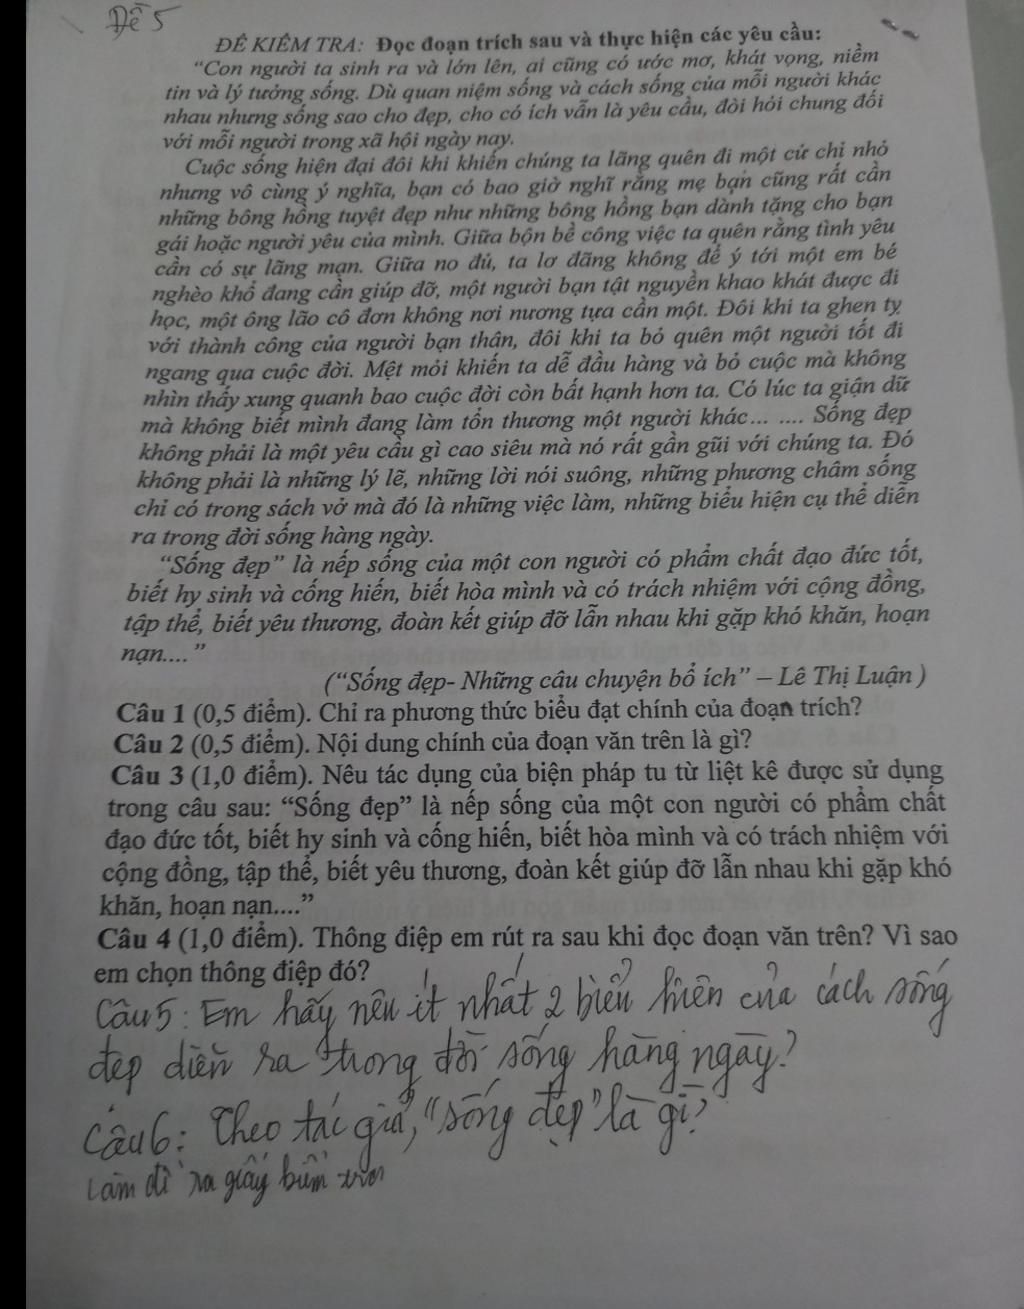 Đề 5
ĐÊ KIÊM TRA: Đọc đoạn trích sau và thực hiện các yêu cầu:
“Con người ta sinh ra và lớn lên, ai cũng có ước mơ, khát vọng, niềm
tin và lý tưởng sống. Dù quan niệm sống và cách sống của mỗi người khác
nhau nhưng sống sao cho đẹp, cho có ích vẫn là yêu cầu, đòi hỏi chung đối
với mỗi người trong xã hội ngày nay.
Cuộc sống hiện đại đôi khi khiến chúng ta lãng quên đi một cử chỉ nhỏ
nhưng vô cùng ý nghĩa, bạn có bao giờ nghĩ rằng mẹ bạn cũng rất cần
những bông hồng tuyệt đẹp như những bông hồng bạn dành tặng cho bạn
gái hoặc người yêu của mình. Giữa bộn bề công việc ta quên rằng tình yêu
cần có sự lãng mạn. Giữa no đủ, ta lơ đãng không để ý tới một em bé
nghèo khổ đang cần giúp đỡ, một người bạn tật nguyền khao khát được đi
học, một ông lão cô đơn không nơi nương tựa cần một. Đôi khi ta ghen tỵ
với thành công của người bạn thân, đôi khi ta bỏ quên một người tốt đi
ngang qua cuộc đời. Mệt mỏi khiến ta dễ đầu hàng và bỏ cuộc mà không
nhìn thấy xung quanh bao cuộc đời còn bất hạnh hơn ta. Có lúc ta giận dữ
mà không biết mình đang làm tổn thương một người khác... .... Sống đẹp
không phải là một yêu cầu gì cao siêu mà nó rất gần gũi với chúng ta. Đó
không phải là những lý lẽ, những lời nói suông, những phương châm sống
chỉ có trong sách vở mà đó là những việc làm, những biểu hiện cụ thể diễn
ra trong đời sống hàng ngày.
“Sống đẹp” là nếp sống của một con người có phẩm chất đạo đức tốt,
biết hy sinh và cống hiến, biết hòa mình và có trách nhiệm với cộng đồng,
tập thể, biết yêu thương, đoàn kết giúp đỡ lẫn nhau khi gặp khó khăn, hoạn
nạn.... ”
(“Sống đẹp- Những câu chuyện bổ ích” – Lê Thị Luận )
Câu 1 (0,5 điểm). Chỉ ra phương thức biểu đạt chính của đoạn trích?
Câu 2 (0,5 điểm). Nội dung chính của đoạn văn trên là gì?
Câu 3 (1,0 điểm). Nêu tác dụng của biện pháp tu từ liệt kê được sử dụng
trong câu sau: “Sống đẹp” là nếp sống của một con người có phẩm chất
đạo đức tốt, biết hy sinh và cống hiến, biết hòa mình và có trách nhiệm với
cộng đồng, tập thể, biết yêu thương, đoàn kết giúp đỡ lẫn nhau khi gặp khó
khăn, hoạn nạn....”
Câu 4 (1,0 điểm). Thông điệp em rút ra sau khi đọc đoạn văn trên? Vì sao
em chọn thông điệp đó?
Câu 5: Em hãy nêu ít nhất 2 biểu hiện của cách sống
đẹp diễn ra trong đời sống hàng ngày?
Câu 6: Theo tác giả, “sống đẹp” là gì?
Làm đề ra giấy